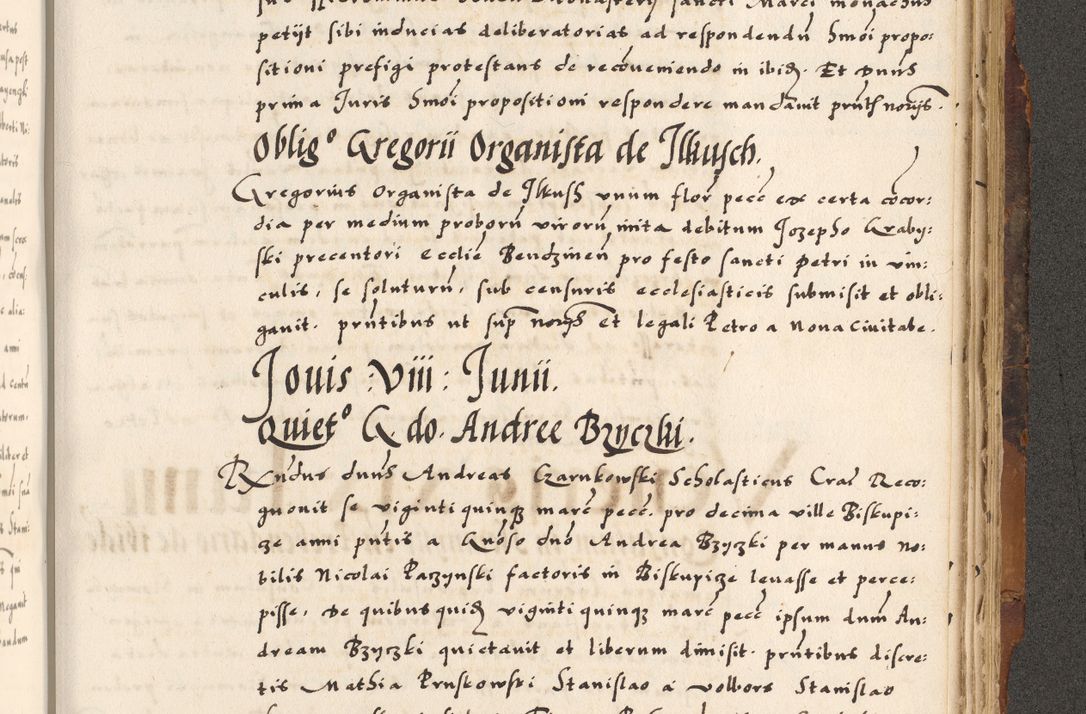 petijt sibi inducias deliberatorias ad respondendū hmōi propo:
sitioni prefigi protestans de recōveniendo in ibid. Et Dnūs
prima Juris hmōi propositioni respondere mandavit prnth norijs.
Obligº Gregorii Organista de Jlkusch.
Gregorius Organista de Jlkush unum flor pecc ex certa cōcor:
dia per medium proborū virorū inita debitum Jozepho Graby:
ski precentori ecclie Bendzineń pro festo sancti Petri in vin:
culis, se soluturū, sub censuris ecclesiasticis submisit et obli:
gavit. prntibus ut sup norijs et legali Petro a Nona Civitate.
Jouis : viii : Junii.
Quietº G do. Andree Bzyczki.
Rxndus dnūs Andreas Czarnkowski Scholasticus Crac Reco:
gnovit se viginti quinqȝ marc pecc. pro decima ville Biskupi:
ze anni pntis a Gnōso dnō Andrea Bzyczki per manus no:
bilis Nicolai Paczynski factoris in Biskupicze levasse et perce:
pisse, De quibus quid viginti quinqȝ marc pecc ipsum dnum An:
dream Bzyczki quietavit et liberum dimisit. prntibus discre:
tis Mathia Pruskowski Stanislao a Volbors Stanislao